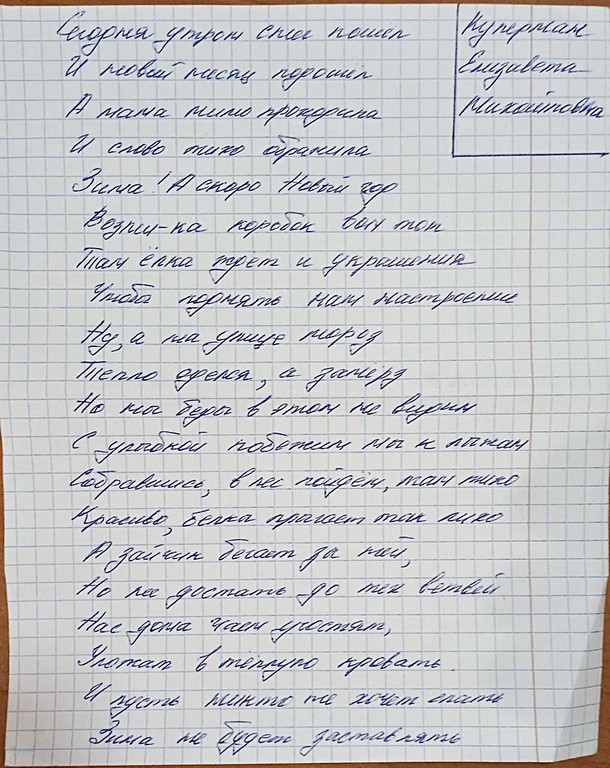 Сегодня утром снег пошел
И новый месяц подошёл
А мама мимо проходила
И слово тихо обранила
Зима! А скоро Новый год
Возьми-ка коробок вон тот
Там ёлка ждет и украшения
Чтобы поднять нам настроение
Ну, а на улице мороз
Тепло оделся, а замерз
Но мы беды в этом не видим
С улыбкой побежим мы к лыжам
Собравшись, в лес пойдём, там тихо
Красиво, белка прыгает так лихо
А зайчик бегает за ней,
Но не достать до тех ветвей
Нас дома чаем угостят,
Уложат в тёплую кровать.
И пусть никто не хочет спать
Зима не будет заставлять
Куперман
Елизавета
Михайловна